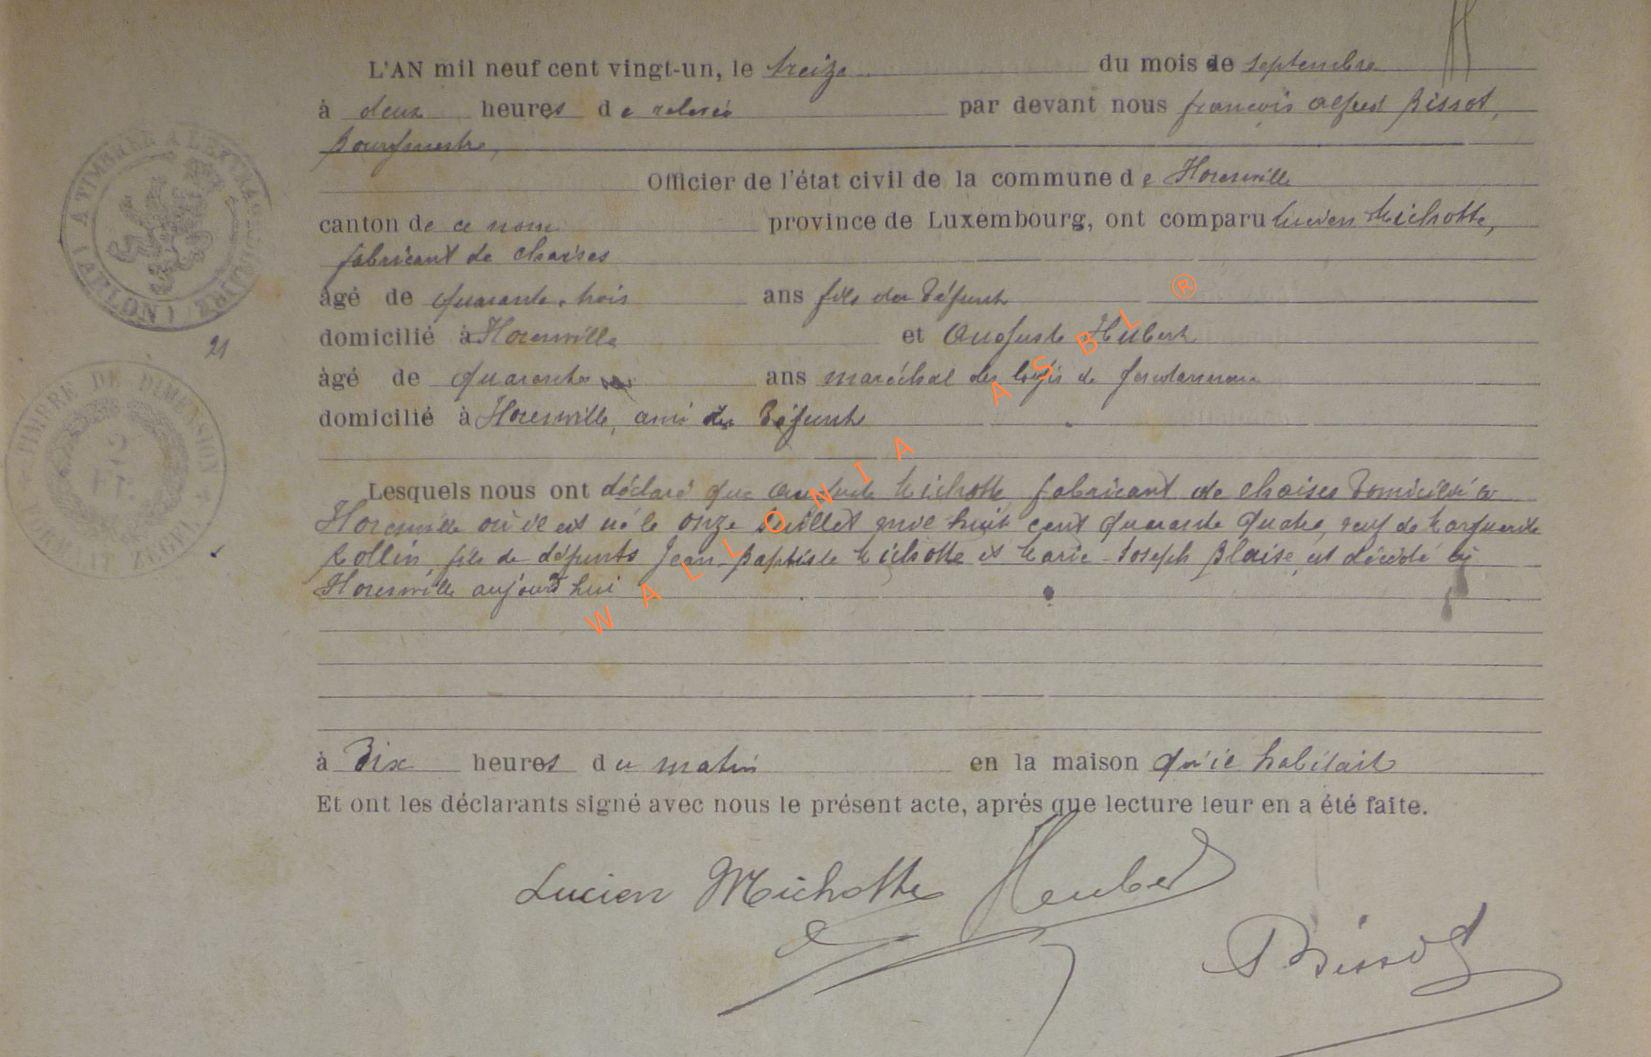 L'AN mil neuf cent vingt-un, le treize du mois de septembre
à deux heures de relevée par devant nous françois alfred Bissot,
Bourgmestre,
Officier de l'état civil de la commune de Houffalize
canton de ce nom province de Luxembourg, ont comparu Lucien Michotte,
fabricant de chaises
âgé de quarante-trois ans fils du défunt
domicilié à et Auguste Hubert
âgé de quarante ans maréchal des logis de gendarmerie
domicilié à ami du défunt
Lesquels nous ont déclaré que Michotte fabricant de chaises domicilié à
où il est né le onze juillet mil huit cent quarante quatre, veuf de Marguerite
Collin, fils de défunts Jean-Baptiste Michotte et Marie-Joseph Blaise, est décédé à
aujourd'hui
à Dix heures du matin en la maison qu'il habitait
Et ont les déclarants signé avec nous le présent acte, aprés que lecture leur en a été faite.
Lucien Michotte Heubert
Bissot
A TIMBRER A L'EXTRAORDINAIRE (ARLON)
21
TIMBRE DE DIMENSION
2 Fr.
ZEGEL
WALLONIA ASBL ®